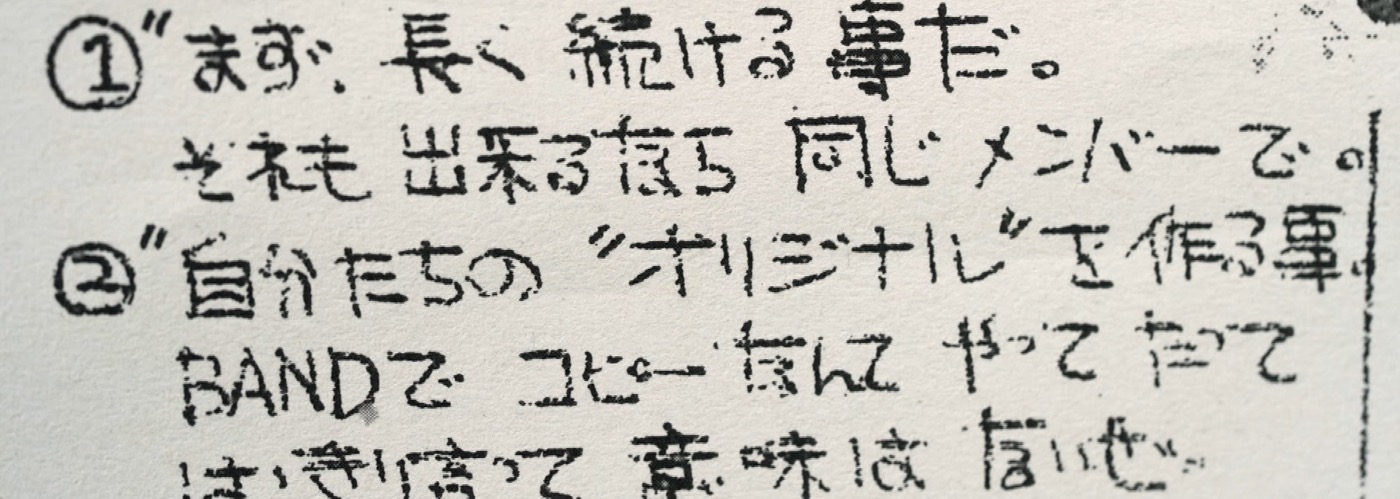 ①〃まず、長く 続ける 事だ。
それも 出来るなら 同じ メンバーで。
②〃自分たちの 〃オリジナル〃を作る事。
BANDで コピーなんて やって たって
はっきり言って 意味は ないぜ。